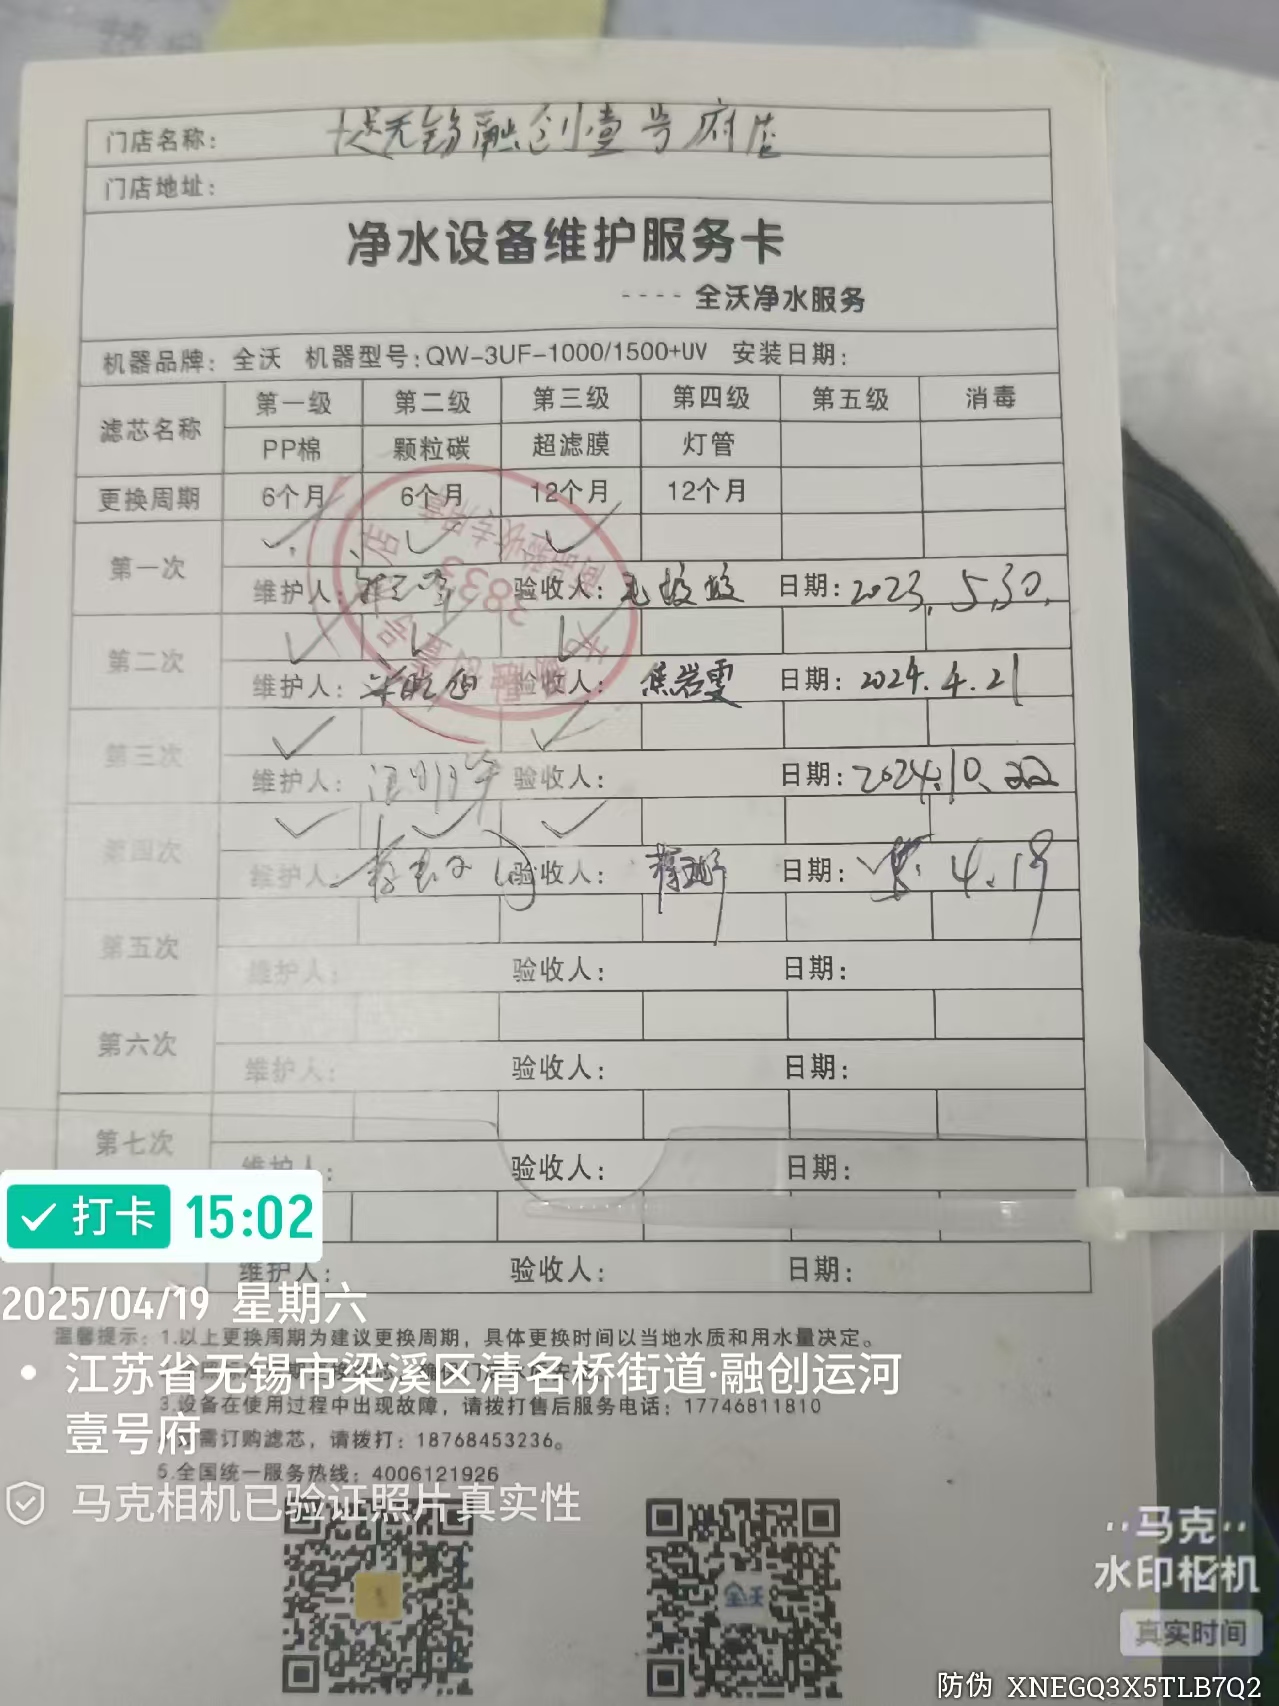 门店名称: 无锡融创壹号府店
门店地址:
净水设备维护服务卡
---- 全沃净水服务
机器品牌: 全沃 机器型号:QW-3UF-1000/1500+UV 安装日期:
滤芯名称 第一级 第二级 第三级 第四级 第五级 消毒
PP棉 颗粒碳 超滤膜 灯管
更换周期 6个月 6个月 12个月 12个月
第一次 ✓ ✓ ✓
维护人: 验收人: 日期: 2023.5.30.
第二次 ✓ ✓ ✓
维护人: 验收人: 焦岩雯 日期: 2024.4.21
第三次 ✓ ✓
维护人: 验收人: 日期: 2024.10.22
第四次 ✓ ✓ ✓
维护人: 验收人: 日期: 4.19
第五次
维护人: 验收人: 日期:
第六次
维护人: 验收人: 日期:
第七次
维护人: 验收人: 日期:
维护人: 验收人: 日期:
3833
商品验收专用章
打卡 15:02
2025/04/19 星期六
温馨提示: 1.以上更换周期为建议更换周期，具体更换时间以当地水质和用水量决定。
江苏省无锡市梁溪区清名桥街道·融创运河
壹号府
3.设备在使用过程中出现故障，请拨打售后服务电话: 17746811810
需订购滤芯，请拨打: 18768453236。
5.全国统一服务热线: 4006121926
马克相机已验证照片真实性
全沃
马克
水印相机
真实时间
防伪 XNEGQ3X5TLB7Q2